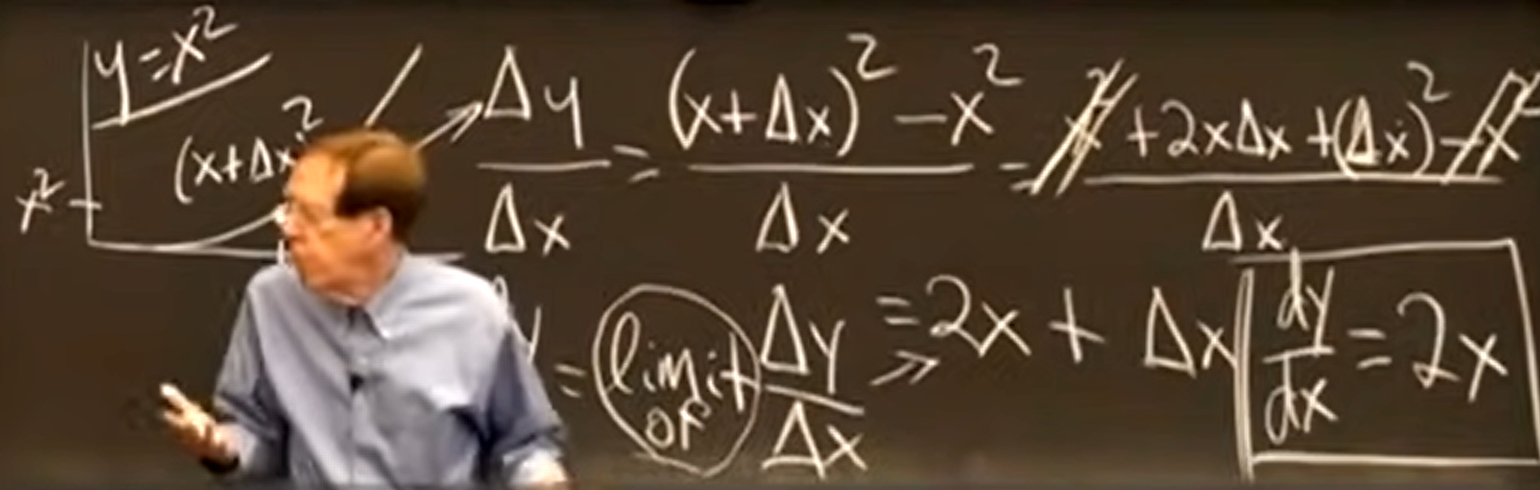 y=x²
(x+Δx)²
x²
Δy/Δx = ((x+Δx)² −x²)/Δx = (x² +2xΔx +(Δx)² −x²)/Δx
= limit of Δy/Δx = 2x + Δx
dy/dx = 2x